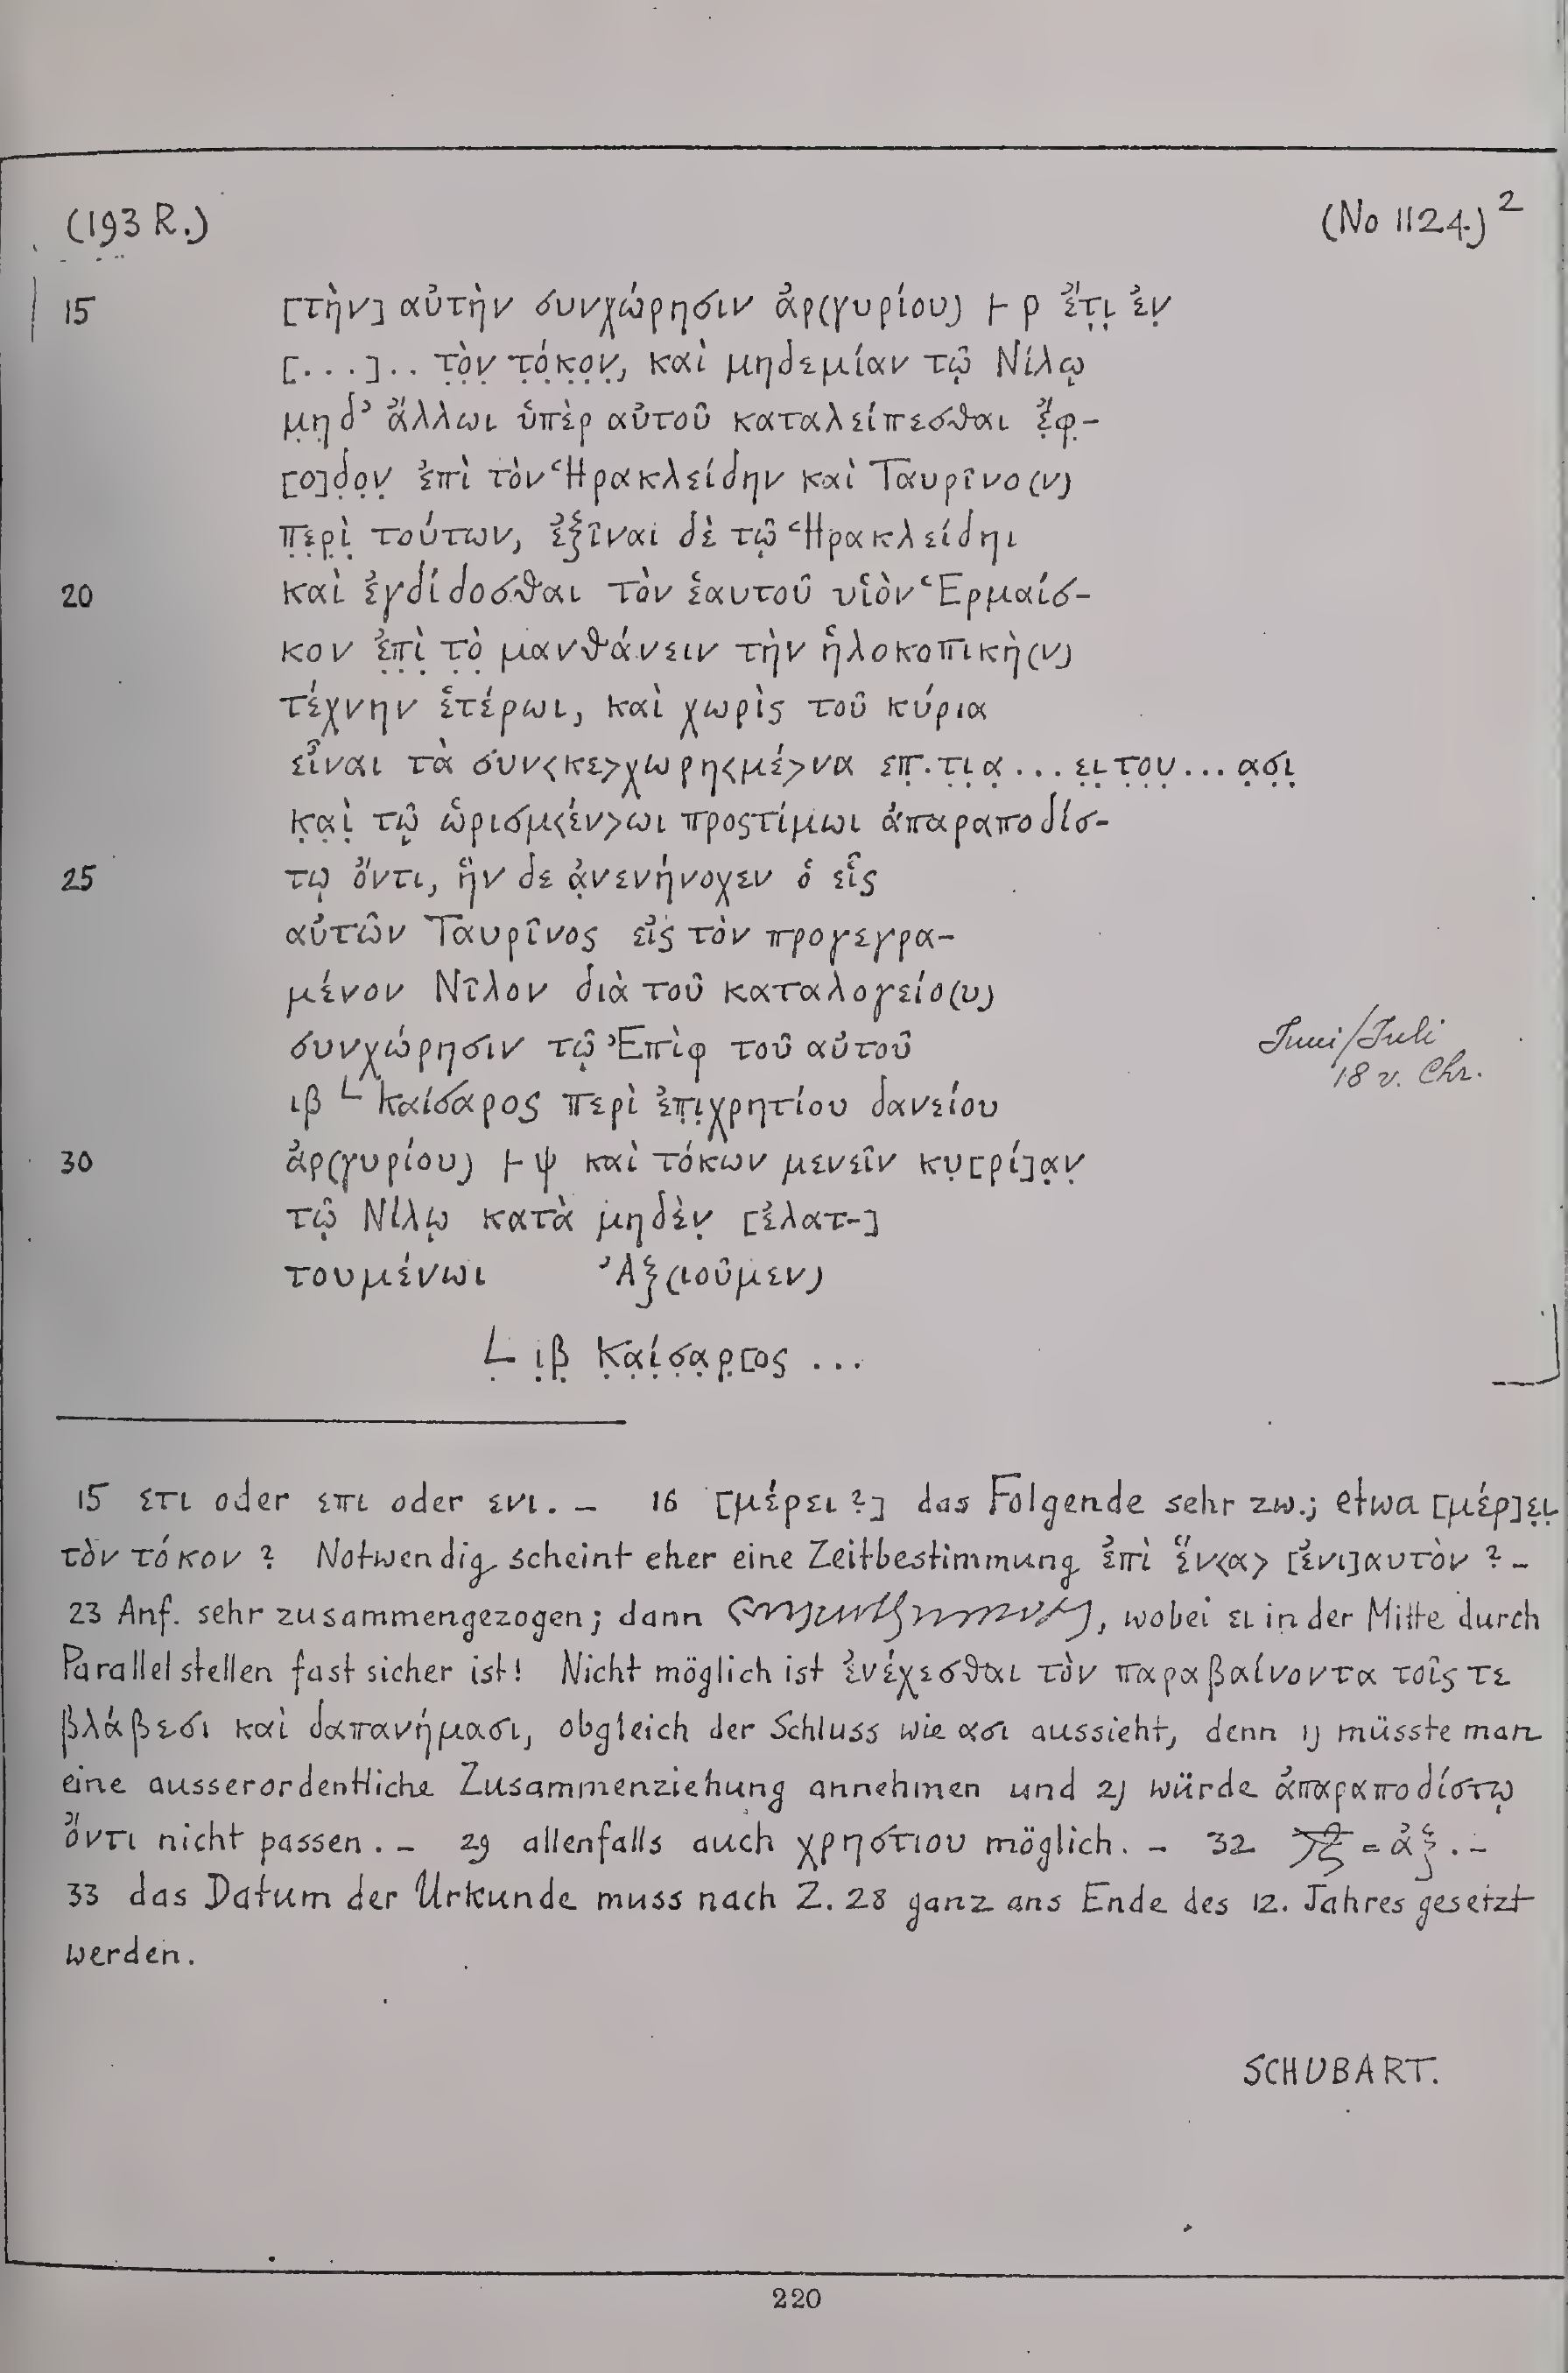 (193 R.) (No 1124.)²
15 [τὴν] αὐτὴν συνχώρησιν ἀρ(γυρίου) 𐅂 ρ ἔτ̣ι̣ ἐν̣
[...].. τ̣ὸ̣ν̣ τ̣ό̣κ̣ο̣ν̣, καὶ μηδεμίαν τῷ Νίλῳ
μ̣η̣δ᾽ ἄλλωι ὑπὲρ αὐτοῦ καταλείπεσθαι ἔ̣φ̣-
[ο]δ̣ο̣ν̣ ἐπὶ τὸν Ἡρακλείδην καὶ Ταυρῖνο(ν)
π̣ε̣ρ̣ὶ̣ τούτων, ἐξῖναι δὲ τῷ Ἡρακλείδηι
20 καὶ ἐγδίδοσθαι τὸν ἑαυτοῦ υἱὸν Ἑρμαίσ-
κον ἐ̣π̣ὶ̣ τ̣ὸ̣ μανθάνειν τὴν ἡλοκοπικὴ(ν)
τέχνην ἑτέρωι, καὶ χωρὶς τοῦ κύρια
εἶναι τὰ συν<κε>χωρη<μέ>να επ̣.τ̣ι̣α̣...ε̣ι̣τ̣ο̣υ̣...α̣σ̣ι̣
κ̣α̣ὶ̣ τῷ ὡρισμ<έν>ωι προςτίμωι ἀπαραποδίσ-
25 τῳ ὄντι, ἣν δε ἀ̣νενήνοχεν ὁ εἷς
αὐτῶν Ταυρῖνος εἰς τὸν προγεγρα-
μένον Νῖλον διὰ τοῦ καταλογείο(υ)
συνχώρησιν τῷ Ἐπὶφ τοῦ αὐτοῦ
Juni/Juli
18 v. Chr.
ιβ L Καίσαρος περὶ ἐπ̣ι̣χρητίου δανείου
30 ἀρ(γυρίου) 𐅂 ψ καὶ τόκων μενεῖν κυ̣[ρί]α̣ν̣
τῷ Νίλῳ κατὰ μηδὲν̣ [ἐλατ-]
τουμένωι Ἀξ(ιοῦμεν)
Ḷ ι̣β̣ Κ̣α̣ί̣σ̣α̣ρ̣[ος ...
15 ετι oder επι oder ενι. – 16 [μέρει?] das Folgende sehr zw.; etwa [μέρ]ε̣ι̣
τὸν τόκον? Notwendig scheint eher eine Zeitbestimmung ἐπὶ ἕν<α> [ἐνι]αυτὸν? –
23 Anf. sehr zusammengezogen; dann , wobei ει in der Mitte durch
Parallelstellen fast sicher ist! Nicht möglich ist ἐνέχεσθαι τὸν παραβαίνοντα τοῖς τε
βλάβεσι καὶ δαπανήμασι, obgleich der Schluss wie ασι aussieht, denn 1) müsste man
eine ausserordentliche Zusammenziehung annehmen und 2) würde ἀπαραποδίστῳ
ὄντι nicht passen. – 29 allenfalls auch χρηστιου möglich. – 32 = ἀξ. –
33 das Datum der Urkunde muss nach Z. 28 ganz ans Ende des 12. Jahres gesetzt
werden.
SCHUBART.
220